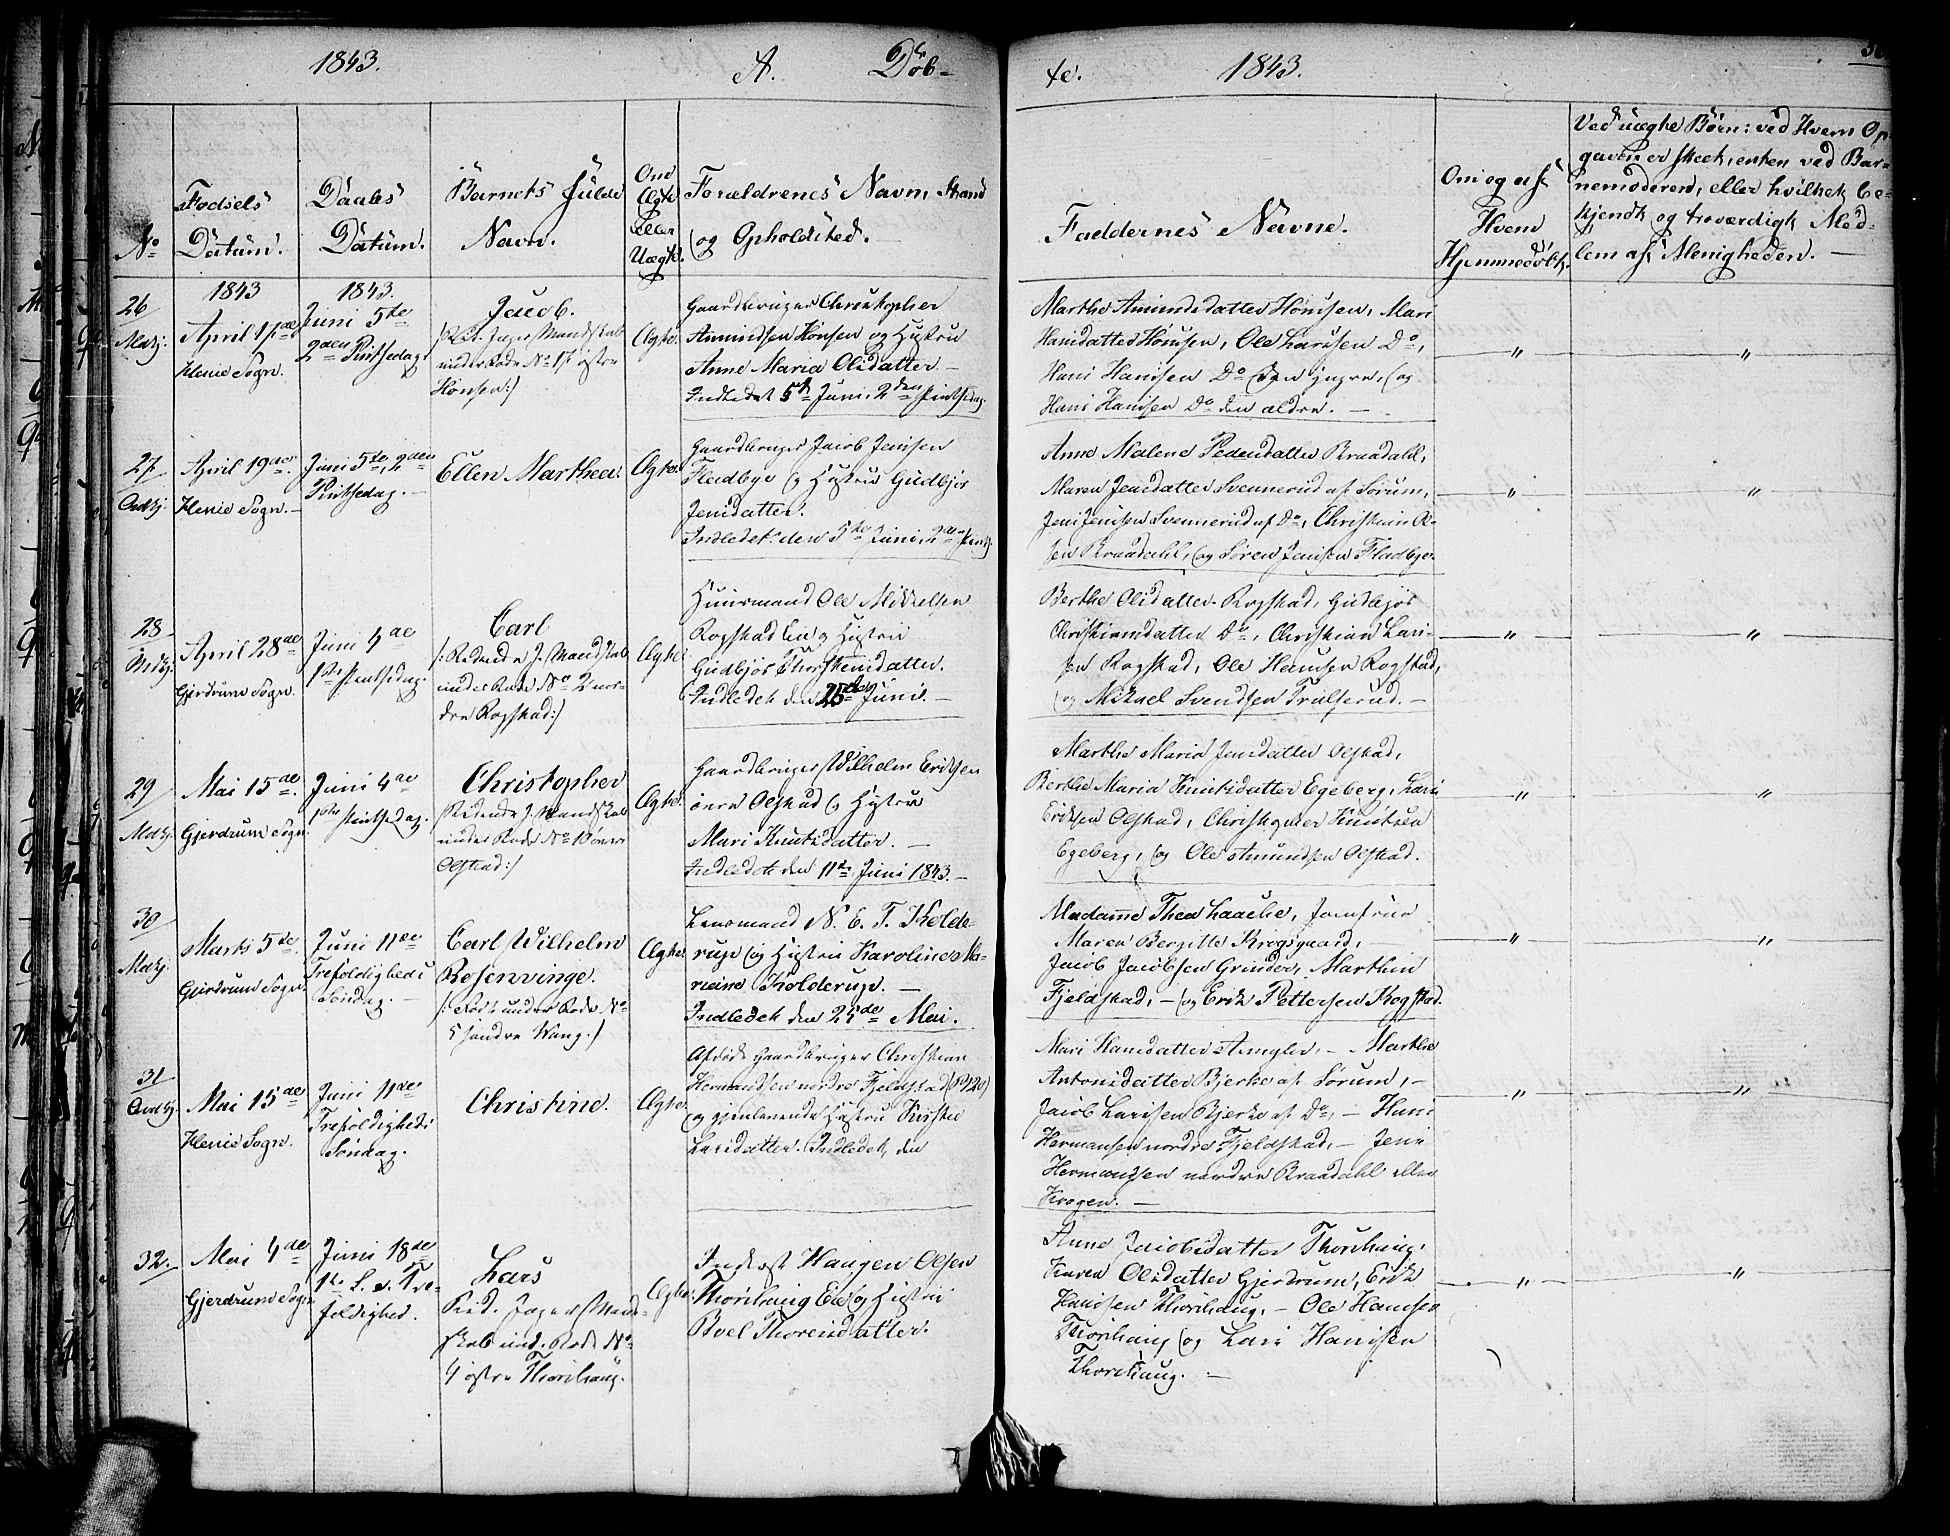 1843. A. Døb-
te. 1843.
No
Fødsels
Datum.
Daabs
Datum.
Barnets fulde
Navn.
Om
Ægte
Eller
Uægte.
Forældrenes Navn, Stand
og Opholdsted. —
Faddernes Navne.
Om og af
Hvem
Hjemmedøbt.
Ved uægte Børn: ved Hvem Op-
gaven er skeet, enten ved Bar-
nemoderen, eller hvilket be-
kjendt og troværdigt Med-
lem af Menigheden. —
26
Mdkj.
1843
April 17de
Henie Sogn.
1843.
Juni 5te
2den Pintsedag
Jacob.
under Rode No 17 østre
Hønsen:/
Ægte.
Gaardbruger Christopher
Amundsen Hønsen og Hustru
Anne Maria Olsdatter. —
Indledet 5te Juni, 2den Pintsedag.
Marthe Amundsdatter Hønsen, Mari
Hansdatter Hønsen, Ole Larssen Do,
Hans Hanssen Do den yngre, og
Hans Hansen Do den ældre. —
27
Qvdkj.
April 19de
Henie Sogn. —
Juni 5te, 2den
Pintsedag. —
Ellen Marthea.
Ægte.
Gaardbruger Jacob Jensen
Fladbye og Hustru Gudbjør
Jensdatter.
Indledet den 5te Juni, 2den Pints.
Anne Malene Pedersdatter Braadahl,
Maren Jensdatter Svennerud af Sørum,
Jens Jensen Svennerud af Do, Christian Ol-
sen Braadahl, og Søren Jensen Fladbye.
28
Mdkj.
April 28de
Gjerdrum Sogn.
Juni 4de
1ste Pintsedag.
Carl
/: Rednende J. Mandskab
under Rode No 2 nor-
dre Rogstad:/
Ægte.
Huusmand Ole Mikkelsen
Rogstad Eie og Hustru
Gudbjør Thorstensdatter.
Indledet den 25de Juni. —
Berthe Olsdatter Rogstad, Gudbjør
Christiansdatter Do, Christian Lars-
sen Rogstad, Ole Hansen Rogstad,
og Mikael Svendsen Trulserud. —
29
Mdkj.
Mai 15de
Gjerdrum Sogn.
Juni 4de
1ste Pintsedag.
Christopher
Ridende J. Mandskab
under Rode No 10 øvre
Olstad:/
Ægte.
Gaardbruger Wilhelm Eriksen
øvre Olstad og Hustru
Mari Knutsdatter. —
Indledet den 11te Juni 1843. —
Marthe Maria Jensdatter Olstad,
Berthe Maria Knutsdatter Egeberg, Lars
Eriksen Olstad, Christopher Knutsen
Egeberg, og Ole Amundsen Olstad.
30
Mdkj.
Marts 5te
Gjerdrum Sogn.
Juni 11te
Trefoldigheds
Søndag. —
Carl Wilhelm
Rosenvinge.
/: Født under Rode No
5 søndre Wang:/
Ægte.
Lensmand N. E. T. Kolde-
rup og Hustru Karoline Ma-
riane Kolderup. —
Indledet den 25de Mai.
Madamme Thea Laache, Jomfrue
Maren Bergitte Krogsgaard,
Jacob Jacobsen Grinder, Marthin
Fjeldstad, — og Erik Pettersen Rogstad.
31
Qvdkj.
Mai 15de
Henie Sogn.
Juni 11te
Trefoldigheds
Søndag.
Christine.
Ægte.
Afdøde Gaardbruger Christian
Hermandsen nordre Fjeldstad (19/120)
og gjenlevende Hustru Kirstie
Larsdatter. Indledet, den
Mari Hansdatter Amgler, — Marthe
Antonsdatter Bjerke af Sørum, —
Jacob Larssen Bjerke af Do, — Hans
Hermansen nordre Fjeldstad, — Jens
Hermandsen nordre Braadahl eller
Krogen. —
32.
Mai 4de
Gjerdrum Sogn
Juni 18de
1ste S. e. Tre-
foldighed.
Lars
Rid. Jager Mand-
skab und. Rode No
4 østre Thorshaug.
Ægte.
Inderst Haagen Olsen
Thorshaug Eie og Hustru
Boel Thorensdatter.
Anne Jacobsdatter Thorshaug,
Karen Olsdatter Gjerdrum, Erik
Hanssen Thorshaug, — Ole Hansen
Thorshaug og Lars Hanssen
Thorshaug. —